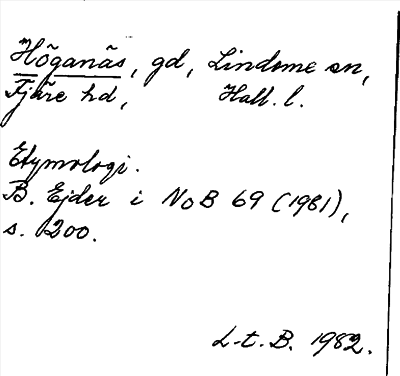 Höganäs, gd, Lindome sn,
Fjäre hd, Hall. l.
Etymologi.
B. Ejder i NoB 69 (1981),
s. 200.
L-t. B. 1982.